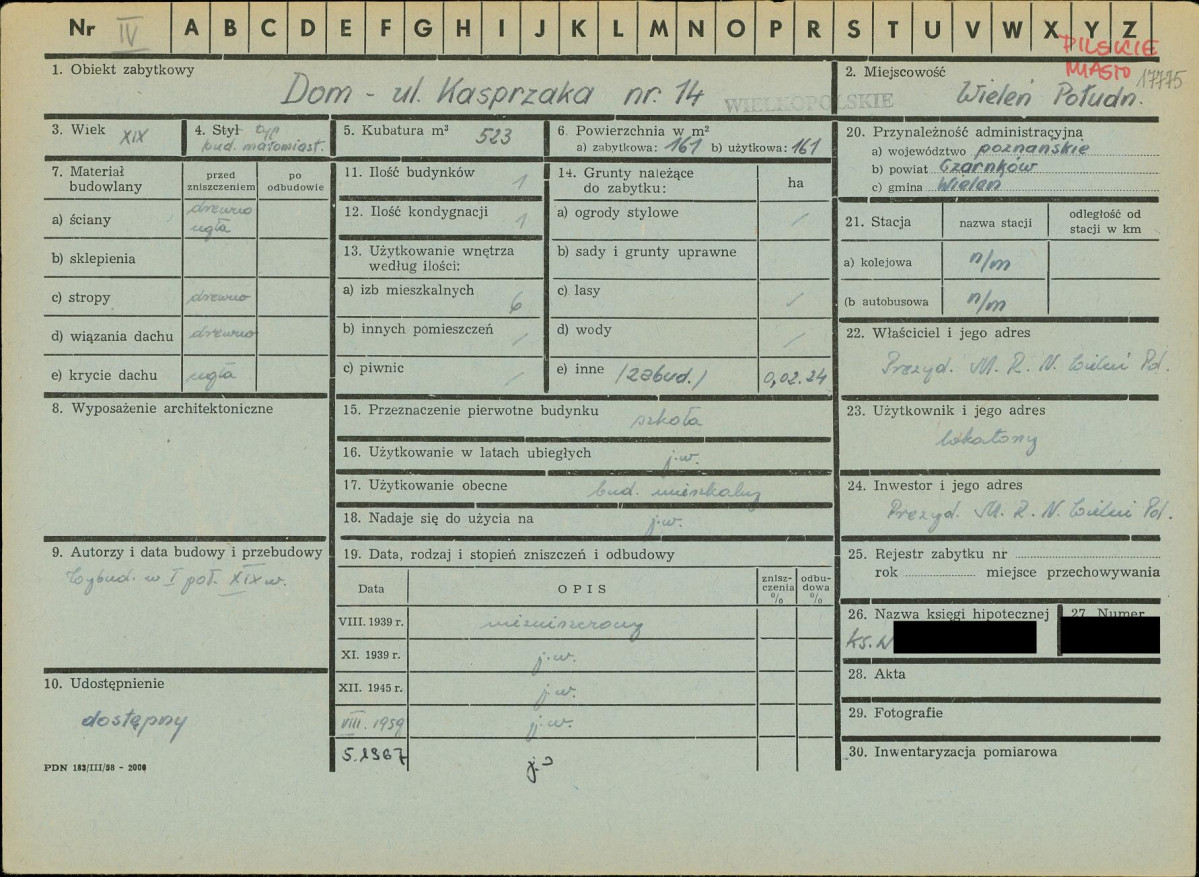 Nr IV A B C D E F G H I J K L M N O P R S T U V W X Y Z
PILSKIE
MIASTO 17775
1. Obiekt zabytkowy
Dom - ul. Kasprzaka nr. 14
WIELKOPOLSKIE
2. Miejscowość
Wieleń Połudn.
3. Wiek XIX
4. Styl typ
bud. małomiast.
5. Kubatura m³ 523
6. Powierzchnia w m²
a) zabytkowa: 161 b) użytkowa: 161
7. Materiał budowlany
przed zniszczeniem
po odbudowie
a) ściany drewno
cegła
b) sklepienia
c) stropy drewno
d) wiązania dachu drewno
e) krycie dachu cegła
8. Wyposażenie architektoniczne
9. Autorzy i data budowy i przebudowy
Wybud. w I poł. XIX w.
10. Udostępnienie
dostępny
PDN 182/III/58 - 2000
11. Ilość budynków 1
12. Ilość kondygnacji 1
13. Użytkowanie wnętrza
według ilości:
a) izb mieszkalnych 6
b) innych pomieszczeń /
c) piwnic /
14. Grunty należące
do zabytku:
ha
a) ogrody stylowe /
b) sady i grunty uprawne
c) lasy /
d) wody /
e) inne /zabud./ 0,02.24
15. Przeznaczenie pierwotne budynku
szkoła
16. Użytkowanie w latach ubiegłych
j.w.
17. Użytkowanie obecne
bud. mieszkalny
18. Nadaje się do użycia na
j.w.
19. Data, rodzaj i stopień zniszczeń i odbudowy
Data
OPIS
znisz-
czenia
%
odbu-
dowa
%
VIII. 1939 r. niezniszczony
XI. 1939 r. j.w.
XII. 1945 r. j.w.
VIII. 1959 j.w.
5.1967 j.w
20. Przynależność administracyjna
a) województwo poznańskie
b) powiat Czarnków
c) gmina Wieleń
21. Stacja
nazwa stacji
odległość od
stacji w km
a) kolejowa n/m
(b autobusowa n/m
22. Właściciel i jego adres
Prezyd. M. R. N. Wieleń Pd.
23. Użytkownik i jego adres
lokatorzy
24. Inwestor i jego adres
Prezyd. M. R. N. Wieleń Pd.
25. Rejestr zabytku nr
rok miejsce przechowywania
26. Nazwa księgi hipotecznej
Ks. W
27. Numer
28. Akta
29. Fotografie
30. Inwentaryzacja pomiarowa